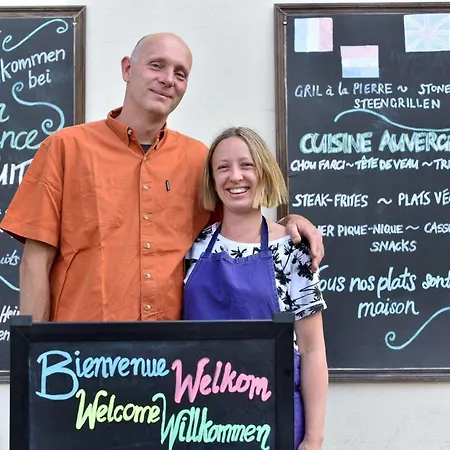 kommen
kommen bei
GRIL à la PIERRE ~ STONE
STEENGRILLEN
CUISINE AUVER
CHOU FARCI ~ TÊTE DE VEAU ~
STEAK-FRITES ~ PLATS VÉ
PIQUE-NIQUE ~
SNACKS
nos plats sont
maison
Bienvenue Welkom
Welcome Willkommen